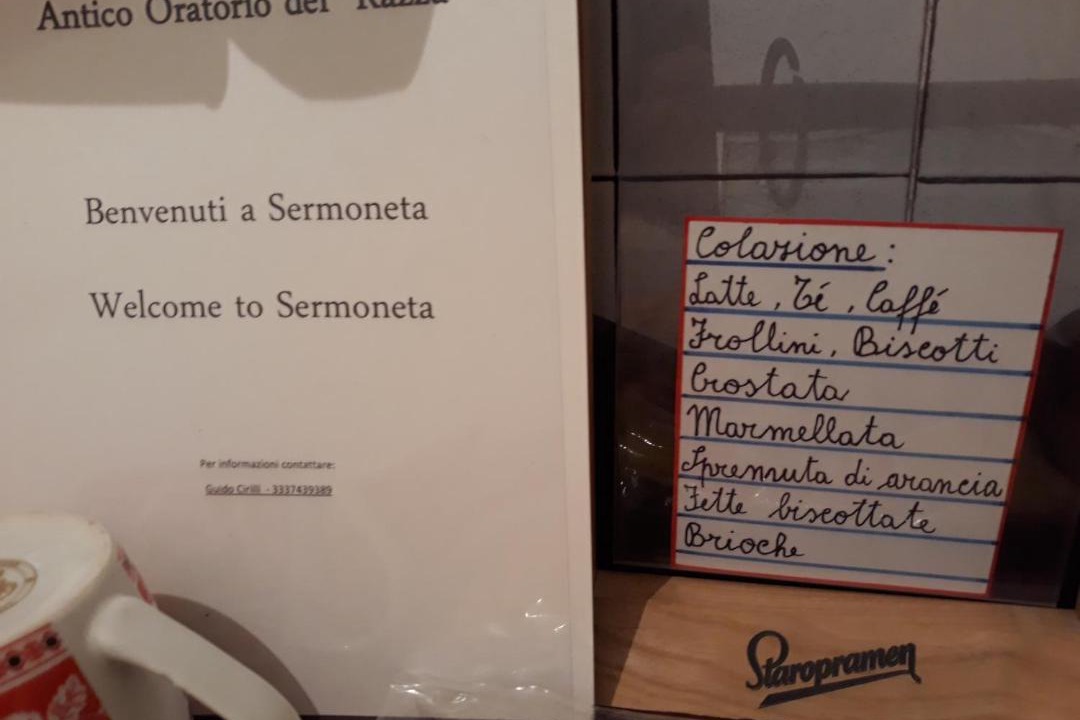 Antico Oratorio dei "Razza"
Benvenuti a Sermoneta
Welcome to Sermoneta
Per informazioni contattare:
Guido Cirilli - 3337439389
Colazione :
Latte, Té, Caffé
Frollini, Biscotti
Crostata
Marmellata
Spremuta di arancia
Fette biscottate
Brioche
Staropramen